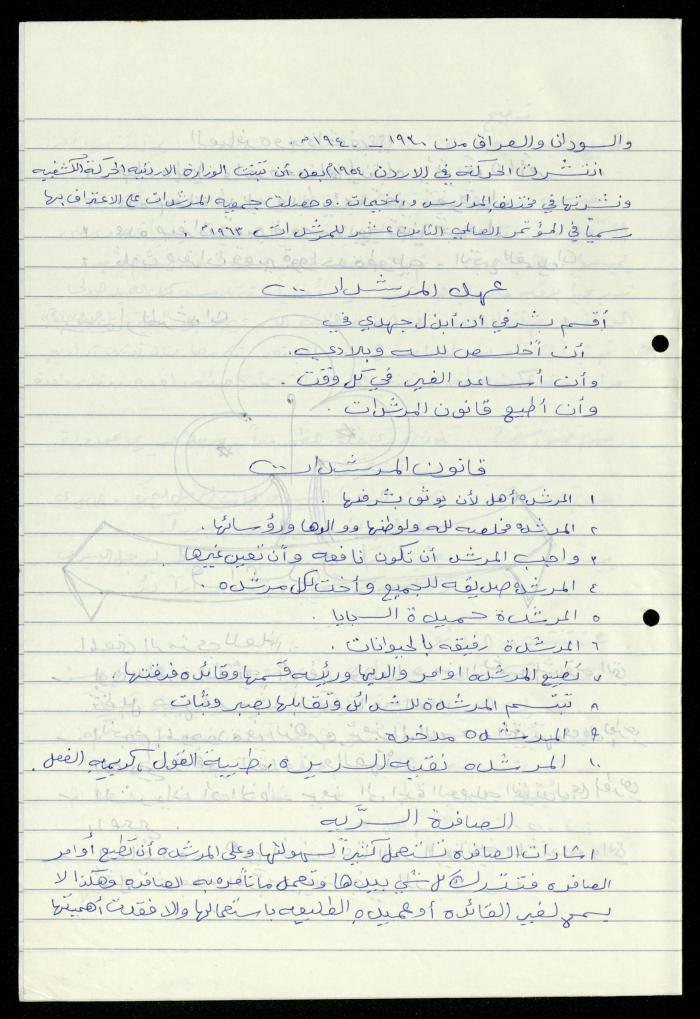 والسودان والعراق من ١٩٣٠ – ١٩٤٠م
انتشرت الحركة في الاردن ١٩٥٤م بعد أن تبنت الوزارة الاردنية الحركة الكشفيه
ونشرتها في مختلف المدارس والمخيمات . وحصلت جمعية المرشدات على الاعتراف بها
رسمياً في المؤتمر العالمي الثامن عشر للمرشدات ١٩٦٣م .
عهد المرشدات
أقسم بشرفي أن أبذل جهدي في
أن أخلص لله وبلادي .
وأن أساعد الغير في كل وقت .
وأن أطيع قانون المرشدات .
قانون المرشدات
١ المرشده أهل لأن يوثق بشرفها .
٢ المرشده مخلصه لله ولوطنها ووالدها ورؤسائها .
٣ واجب المرشد أن تكون نافعه وأن تعين غيرها .
٤ المرشدة صديقه للجميع وأخت لكل مرشده .
٥ المرشدة حميدة السجايا .
٦ المرشدة رفيقه بالحيوانات .
٧ تطيع المرشده اوامر والديها ورئيسه قسمها وقائده فرقتها
٨ تبتسم المرشدة للشدائد وتقابلها بصبر وثبات
٩ المرشده مدخره
١٠ المرشده نقيه السريره ، طيبية القول ، كريميه الفعل .
الصافرة السرّيه
اشارات الصافره تستعمل كثيراً لسهولتها وعلى المرشده أن تطيع أوامر
الصافره فتترك كل شي بيدها وتعمل ما تأمره به الصافره وهكذا لا
يسمح لغير القائده أو عميده الطليعه باستعمالها والا فقدت أهميتها